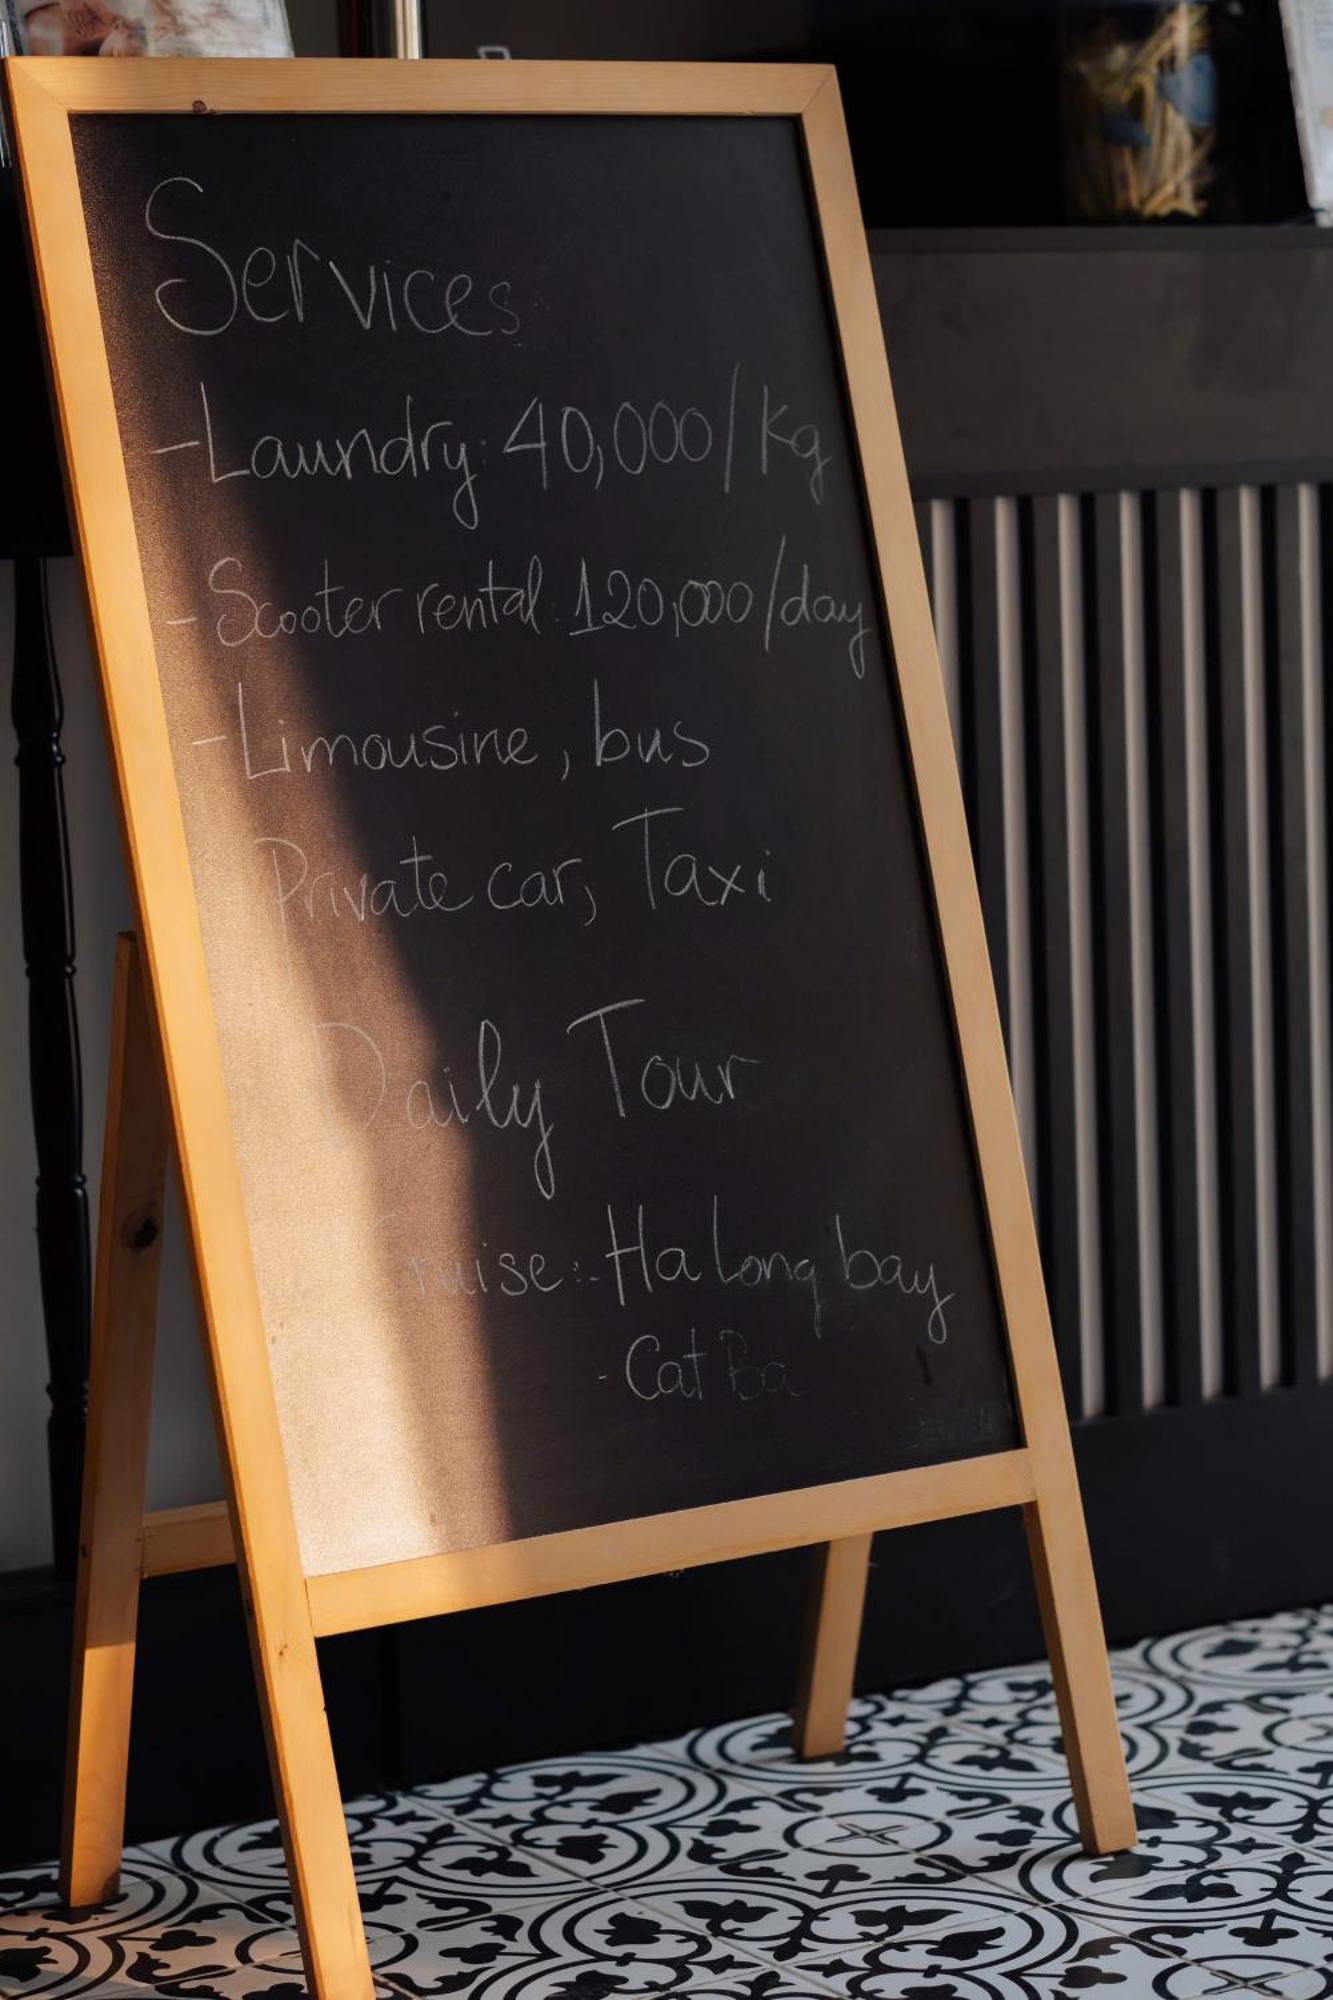 Services
-Laundry: 40,000/kg
- Scooter rental: 120,000/day
-Limousine, bus
Private car, Taxi
Daily Tour
Cruise: - Ha Long bay
- Cat Ba